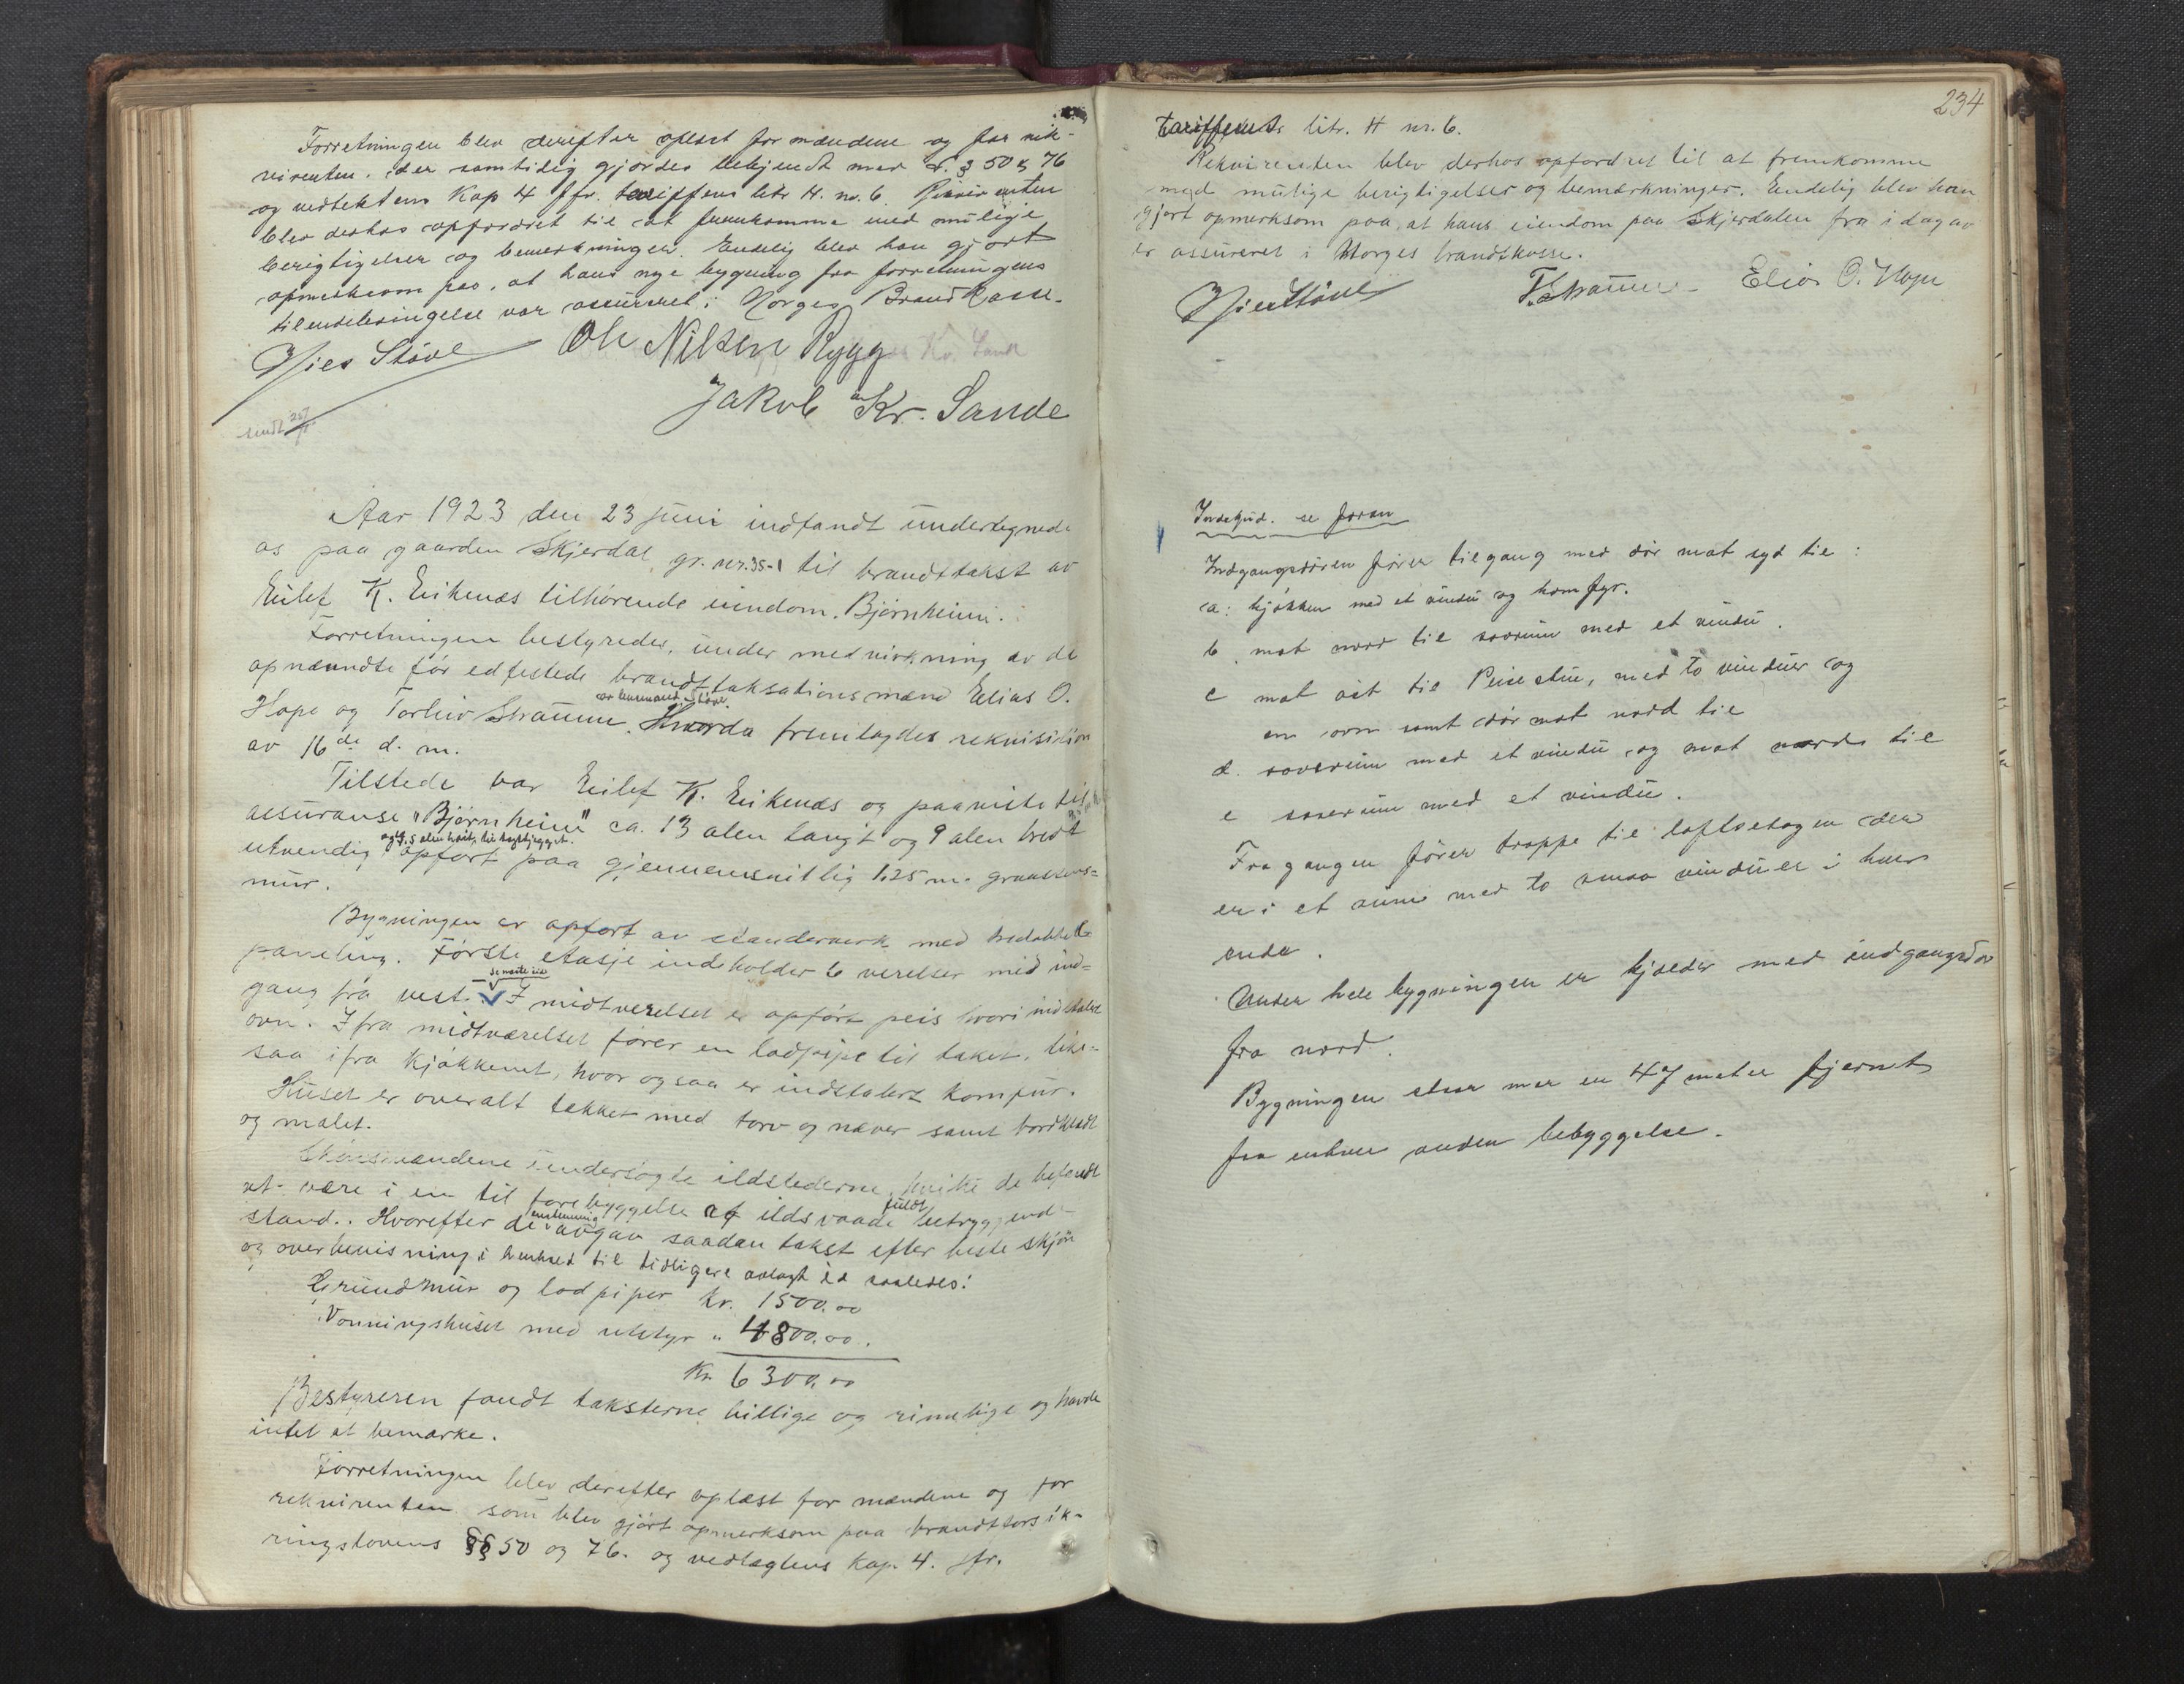 Forretningen blev derefter oplæst for mændene og for rek-
virenten. der samtidig gjordes bekjendt med L. § 50 & 76
og vedtektens Kap 4 jfr. tariffens litr H. nr. 6. Rekvirenten
blev derhos opfordret til at fremkomme med mulige
berigtigelser og bemerkninger. Endelig blev han gjort
opmerksom paa, at hans nye bygning fra forretningens
tilendebringelse var assureret i Norges Brandkasse.
Nies Støve Ole Nilsen Rygg
Jakob Kr. Sande
sendt
Aar 1923 den 23 juni indfandt undertegnede
os paa gaarden Skjerdal gr. nr. 35-1 til brandttakst av
Eilef K. Eikenæs tilhørende eiendom. Bjørnheim.
Forretningen bestyredes, under medvirkning av de
opnævndte før edfestede brandttaksationsmænd Elias O.
Hope og Torleiv Straume. Hvorda fremlagdes rekvisition
av 16de d. m.
Tilstede var Eilef K. Eikenæs og paaviste til
assuranse "Bjørnheim" ca. 13 alen langt og 9 alen bredt
utvendig opført paa gjennemsnitlig 1.25 m. graastens-
mur.
Bygningen er opført av standerverk med
paneling. Første etasje indeholder 6 værelser med ind-
se næste side
gang fra vest. I midtværelset er opført peis hvori indstalert
ovn. Ifra midtværelset fører en lodpipe til taket, like-
saa ifra kjøkkenet, hvor ogsaa er indstalert komfur.
Huset er overalt tækket med torv og næver samt bordklædt
og malet.
Skjønsmændene undersøgte ildstederne, hvilke de befandt
at være i en til forebyggelse af ildsvaade fuldt betryggende
stand. Hvorefter de enstemmig avgav saadan takst efter beste skjøn
og overbevisning i henhold til tidligere avlagt ed saaledes:
Grundmur og lodpiper kr. 1500.00
Vonningshuset med utstyr " 4800.00.
Kr. 6300.00
Bestyreren fandt taksterne billige og rimelige og havde
intet at bemærke.
Forretningen blev derefter oplæst for mændene og for
rekvirenten som blev gjort opmerksom paa brandtforsik-
ringslovens §§ 50 og 76. og vedtægtens Kap. 4. jfr.
234
tariffens litr. H nr. 6.
Rekvirenten blev derhos opfordret til at fremkomme
med mulige berigtigelser og bemærkninger. Endelig blev han
gjort opmerksom paa, at hans eiendom paa Skjerdalen fra i dag av
er assureret i Norges brandtkasse.
Nies Støve T. Straume Elias O. Hope
Indskud. se foran
Indgangsdøren fører til gang med dør mot syd til :
a: kjøkken med et vindu og komfyr.
b mot nord til soverum med et vindu.
c mot øst til Peisestue, med to vinduer og
en ovn samt dør mot nord til
d. soverum med et vindu og mot nord til
e soverum med et vindu.
Fra gangen fører trappe til loftsetagen der
er i et rum med to smaa vinduer i hver
ende.
Under hele bygningen er kjæller med indgangsdør
fra nord.
Bygningen staar mer en 47 meter fjernt
fra enhver anden bebyggelse.